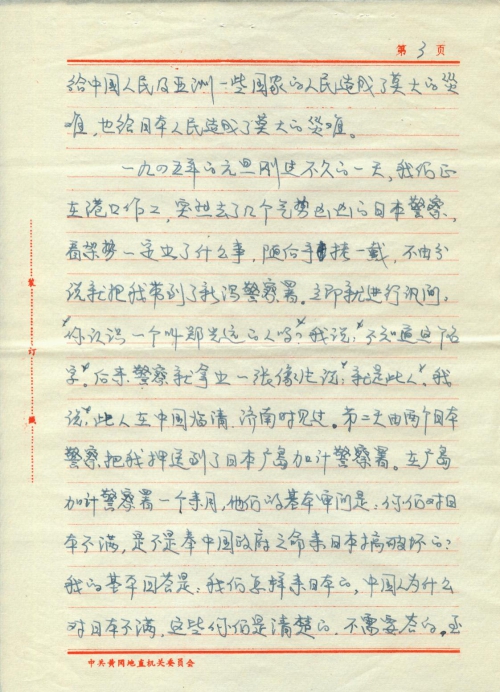 第3页
给中国人民及亚洲一些国家的人民造成了莫大的災
难，也给日本人民造成了莫大的災难。
一九四五年的元旦刚过不久的一天，我们正
在港口作工，突然去了几个气势凶凶的日本警察，
看架势一定出了什么事，随后手拷一戴，不由分
说就把我带到了新潟警察署。立即就进行讯问：
“你认识一个叫郑光远的人吗？”我说：“不知道这个名
字”。后来警察就拿出一张像片说：“就是此人”。我
说：“此人在中国临清、济南时见过。第二天由两个日本
警察把我押送到了日本广岛加计警察署。在广岛
加计警察署一个来月，他们的基本审问是：你们对日
本不满，是不是奉中国政府之命来日本搞破坏的？
我的基本回答是：我们怎样来日本的，中国人为什么
对日本不满，这些你们是清楚的，不需要答的。至
装
订
线
中共黄冈地直机关委员会